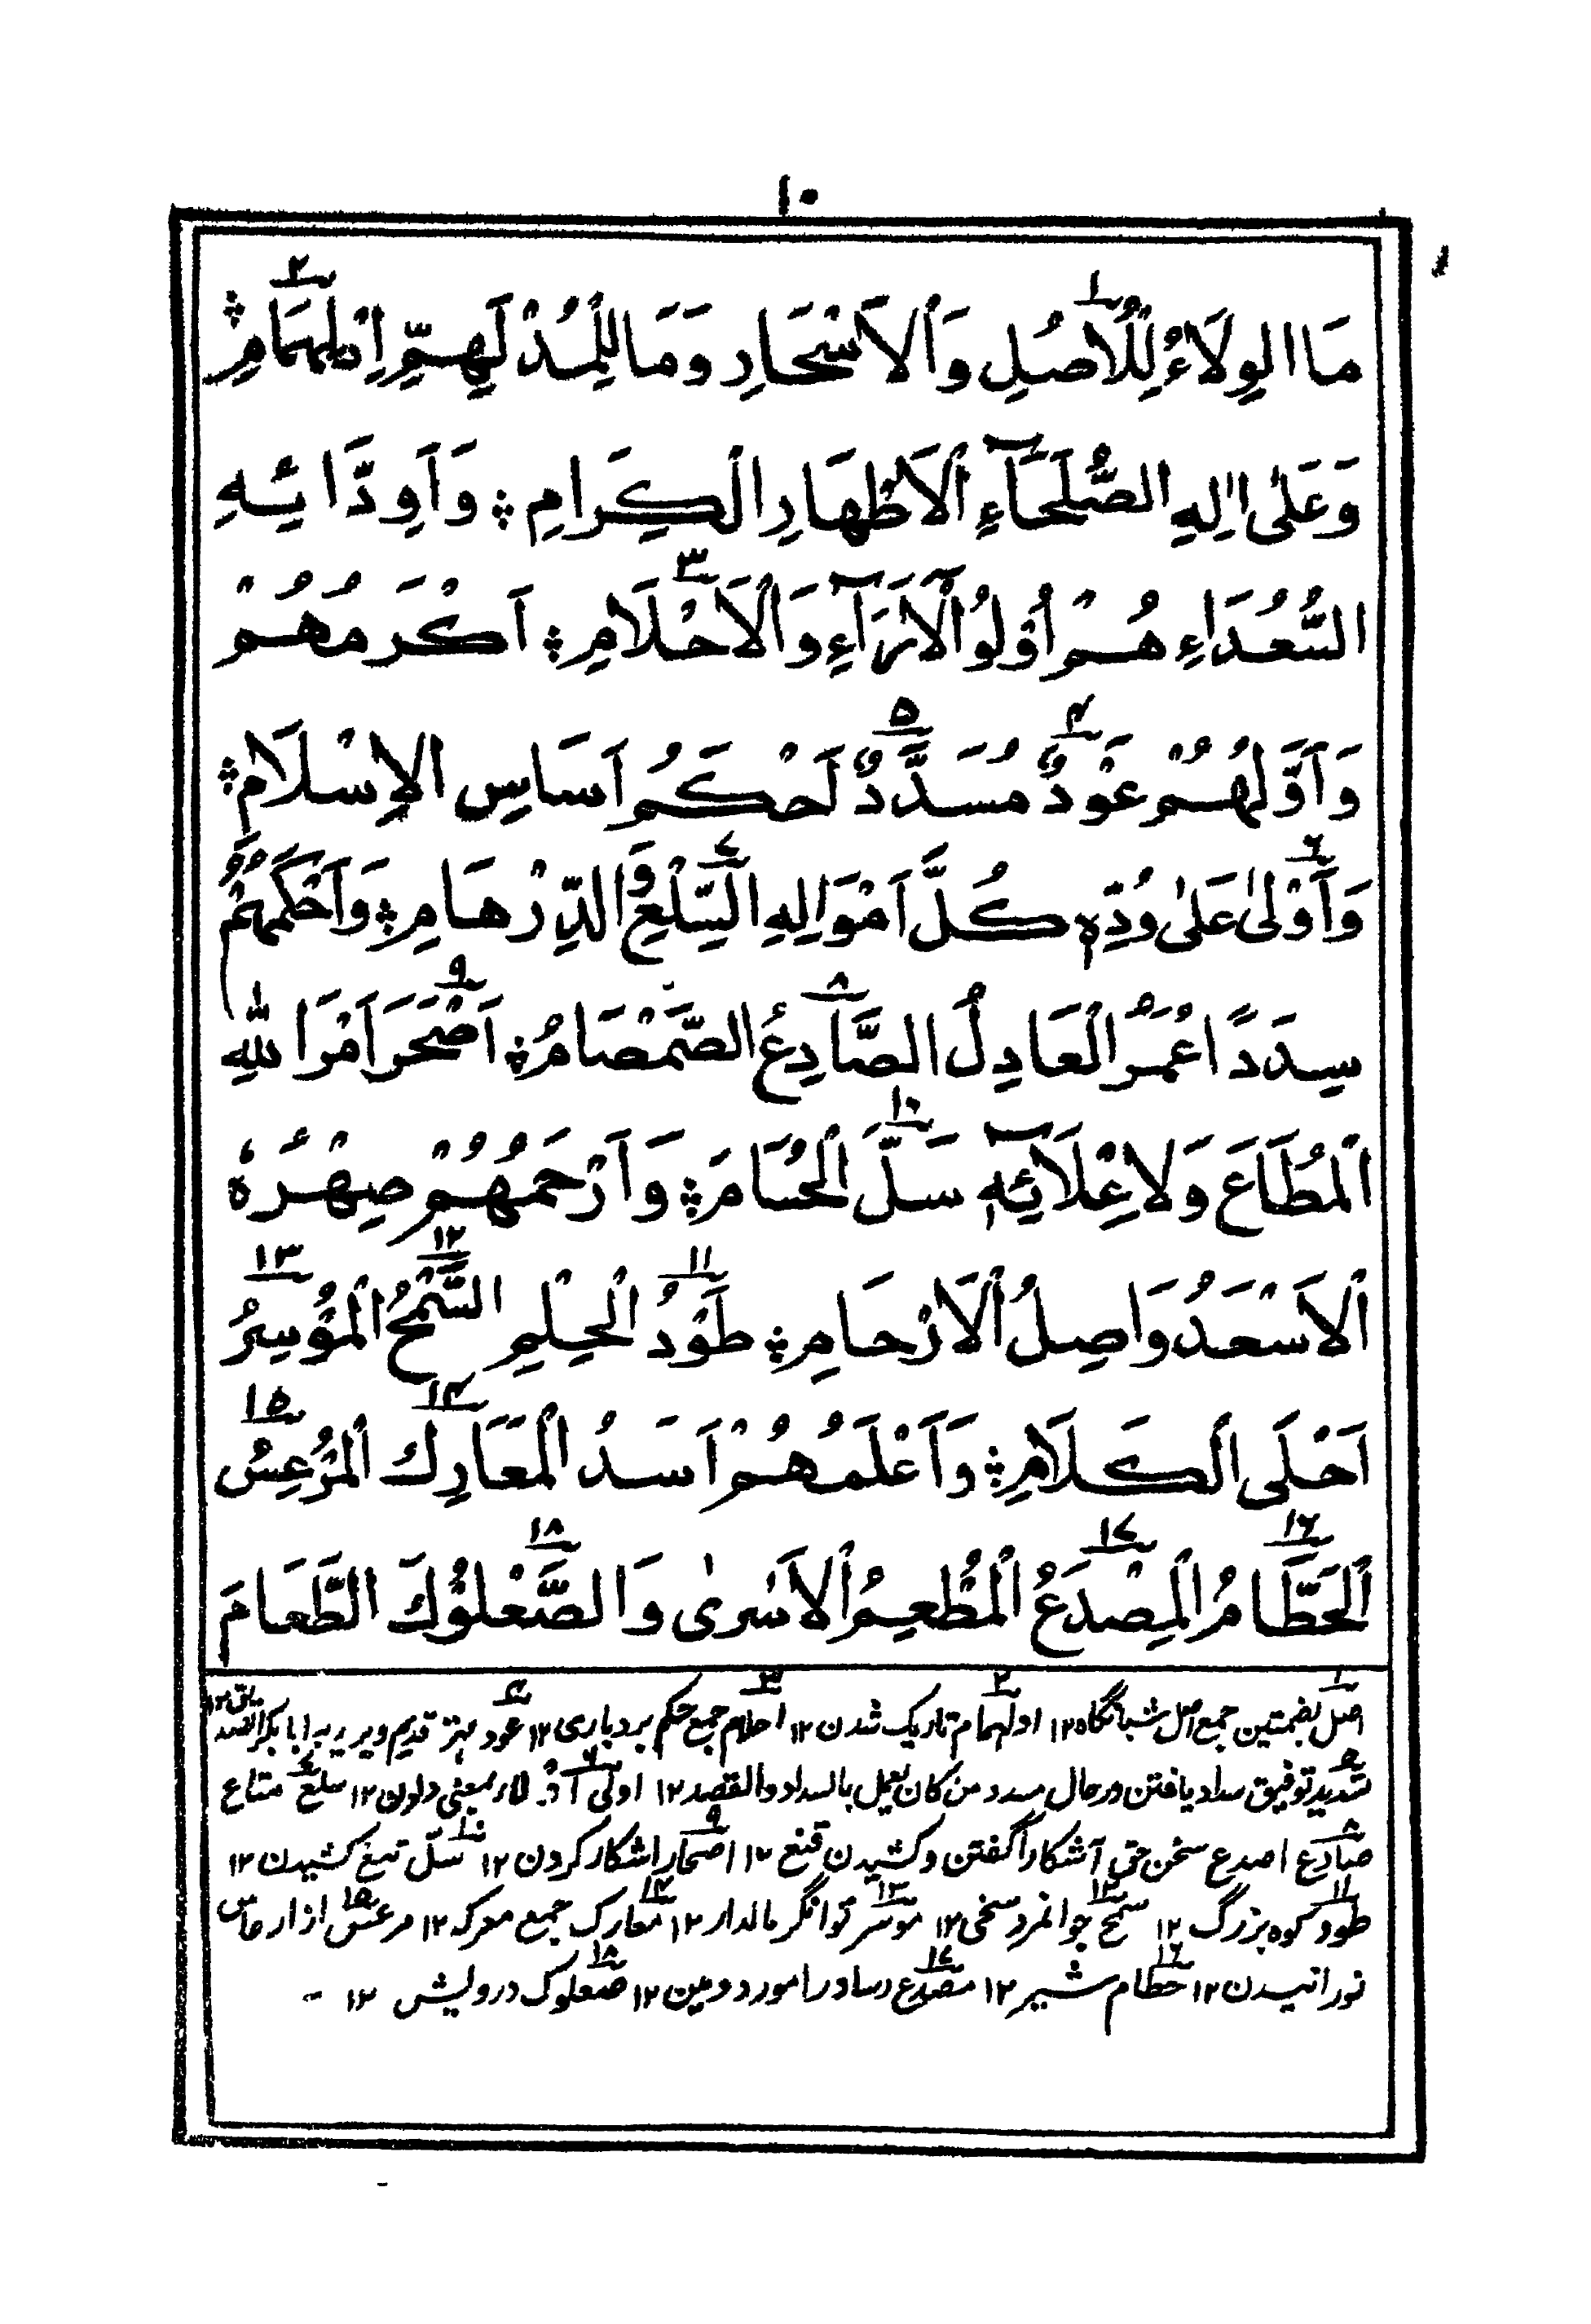 ١٠
مَا الوِلَاءُ لِلْاُصُلِ وَالْاَسْحَارِ وَمَا لِلْمُدْلَهِمِّ اِدْلِهْمَامٌ ؞
وَعَلٰى اٰلِهِ الصُّلَحَآءِ الْاَطْهَارِ الْكِرَامِ ؞ وَاَوِدَّائِهِ
السُّعُدَاءِ هُمْ اُوْلُوا الْاٰرَآءِ وَالْاَحْلَامِ ؞ اَكْرَمُهُمْ
وَاَوَّلُهُمْ عَوْدٌ مُسَدَّدٌ اَحْكَمُ اَسَاسِ الاِسْلَامِ ؞
وَاَوْلٰى عَلٰى وُدِّهٖ كُلَّ اَمْوَالِهِ السِّلْعِ وَالدِّرْهَامِ ؞ وَاَحْكَمُهُمْ
سِدَدًا عُمَرُ الْعَادِلُ الصَّادِعُ الصَّمْصَامُ ؞ اَصْحَرَ اَمْرَ اللهِ
الْمُطَاعَ وَلاِعْلَآئِهٖ سَلَّ الْحُسَامَ ؞ وَاَرْحَمُهُمْ صِهْرُهٗ
الْاَسْعَدُ وَاصِلُ الْاَرْحَامِ ؞ طَوْدُ الْحِلْمِ السَّمْحُ الْمُوْسِرُ
اَحْلَى الْكَلَامِ ؞ وَاَعْلَمُهُمْ اَسَدُ الْمَعَارِكِ الْمُرْعِسُ
الْحَطَّامُ الْمِصْدَعُ الْمُطْعِمُ الْاَسْرٰى وَالصَّعْلُوْكَ الطَّعَامَ
اصل بضمتین جمع اصل شبانگاه ١٢ ادلهمام تاریک شدن ١٢ احلام جمع حکم بردباری ١٢ عود بهتر قدیم و دیرینه ابابکر الصدیق ١٢
تسدید توفیق سداد یافتن در حال مسدد من کان یعمل بالسداد والقصد ١٢ اولی بمعنی دادن ١٢ سلع متاع
صادع اصدع سخن حق آشکارا گفتن و کشیدن تیغ ١٢ اصحار اشکار کردن ١٢ سلّ تیغ کشیدن ١٢
طود کوه بزرگ ١٢ سمح جوانمرد سخی ١٢ موسر توانگر مالدار ١٢ معارک جمع معرکه ١٢ مرعس از ارعاس
نورانیدن ١٢ حطام شیر ١٢ مصدع رسا در امور و مبین ١٢ صعلوک درویش ١٢ -